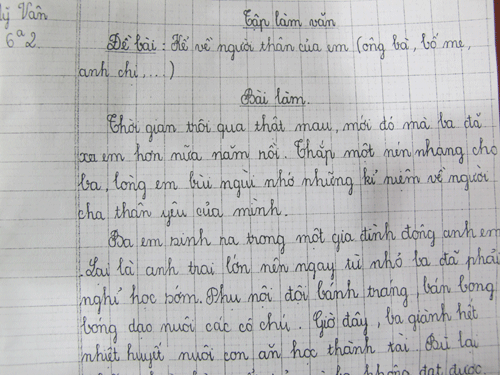 lý Vân
6ª2.
Tập làm văn
Đề bài : Kể về người thân của em (ông bà, bố mẹ,
anh chị, ...)
Bài làm.
Thời gian trôi qua thật mau, mới đó mà ba đã
xa em hơn nữa năm rồi. Thắp một nén nhang cho
ba, lòng em bùi ngùi nhớ những kỉ niệm về người
cha thân yêu của mình.
Ba em sinh ra trong một gia đình đông anh em
. Lại là anh trai lớn nên ngay từ nhỏ ba đã phải
nghỉ học sớm. Phụ nội đội bánh tráng, bán bong
bóng dạo nuôi các cô chú. Giờ đây, ba giành hết
nhiệt huyết nuôi con ăn học thành tài. Bùi
ba không đạt được